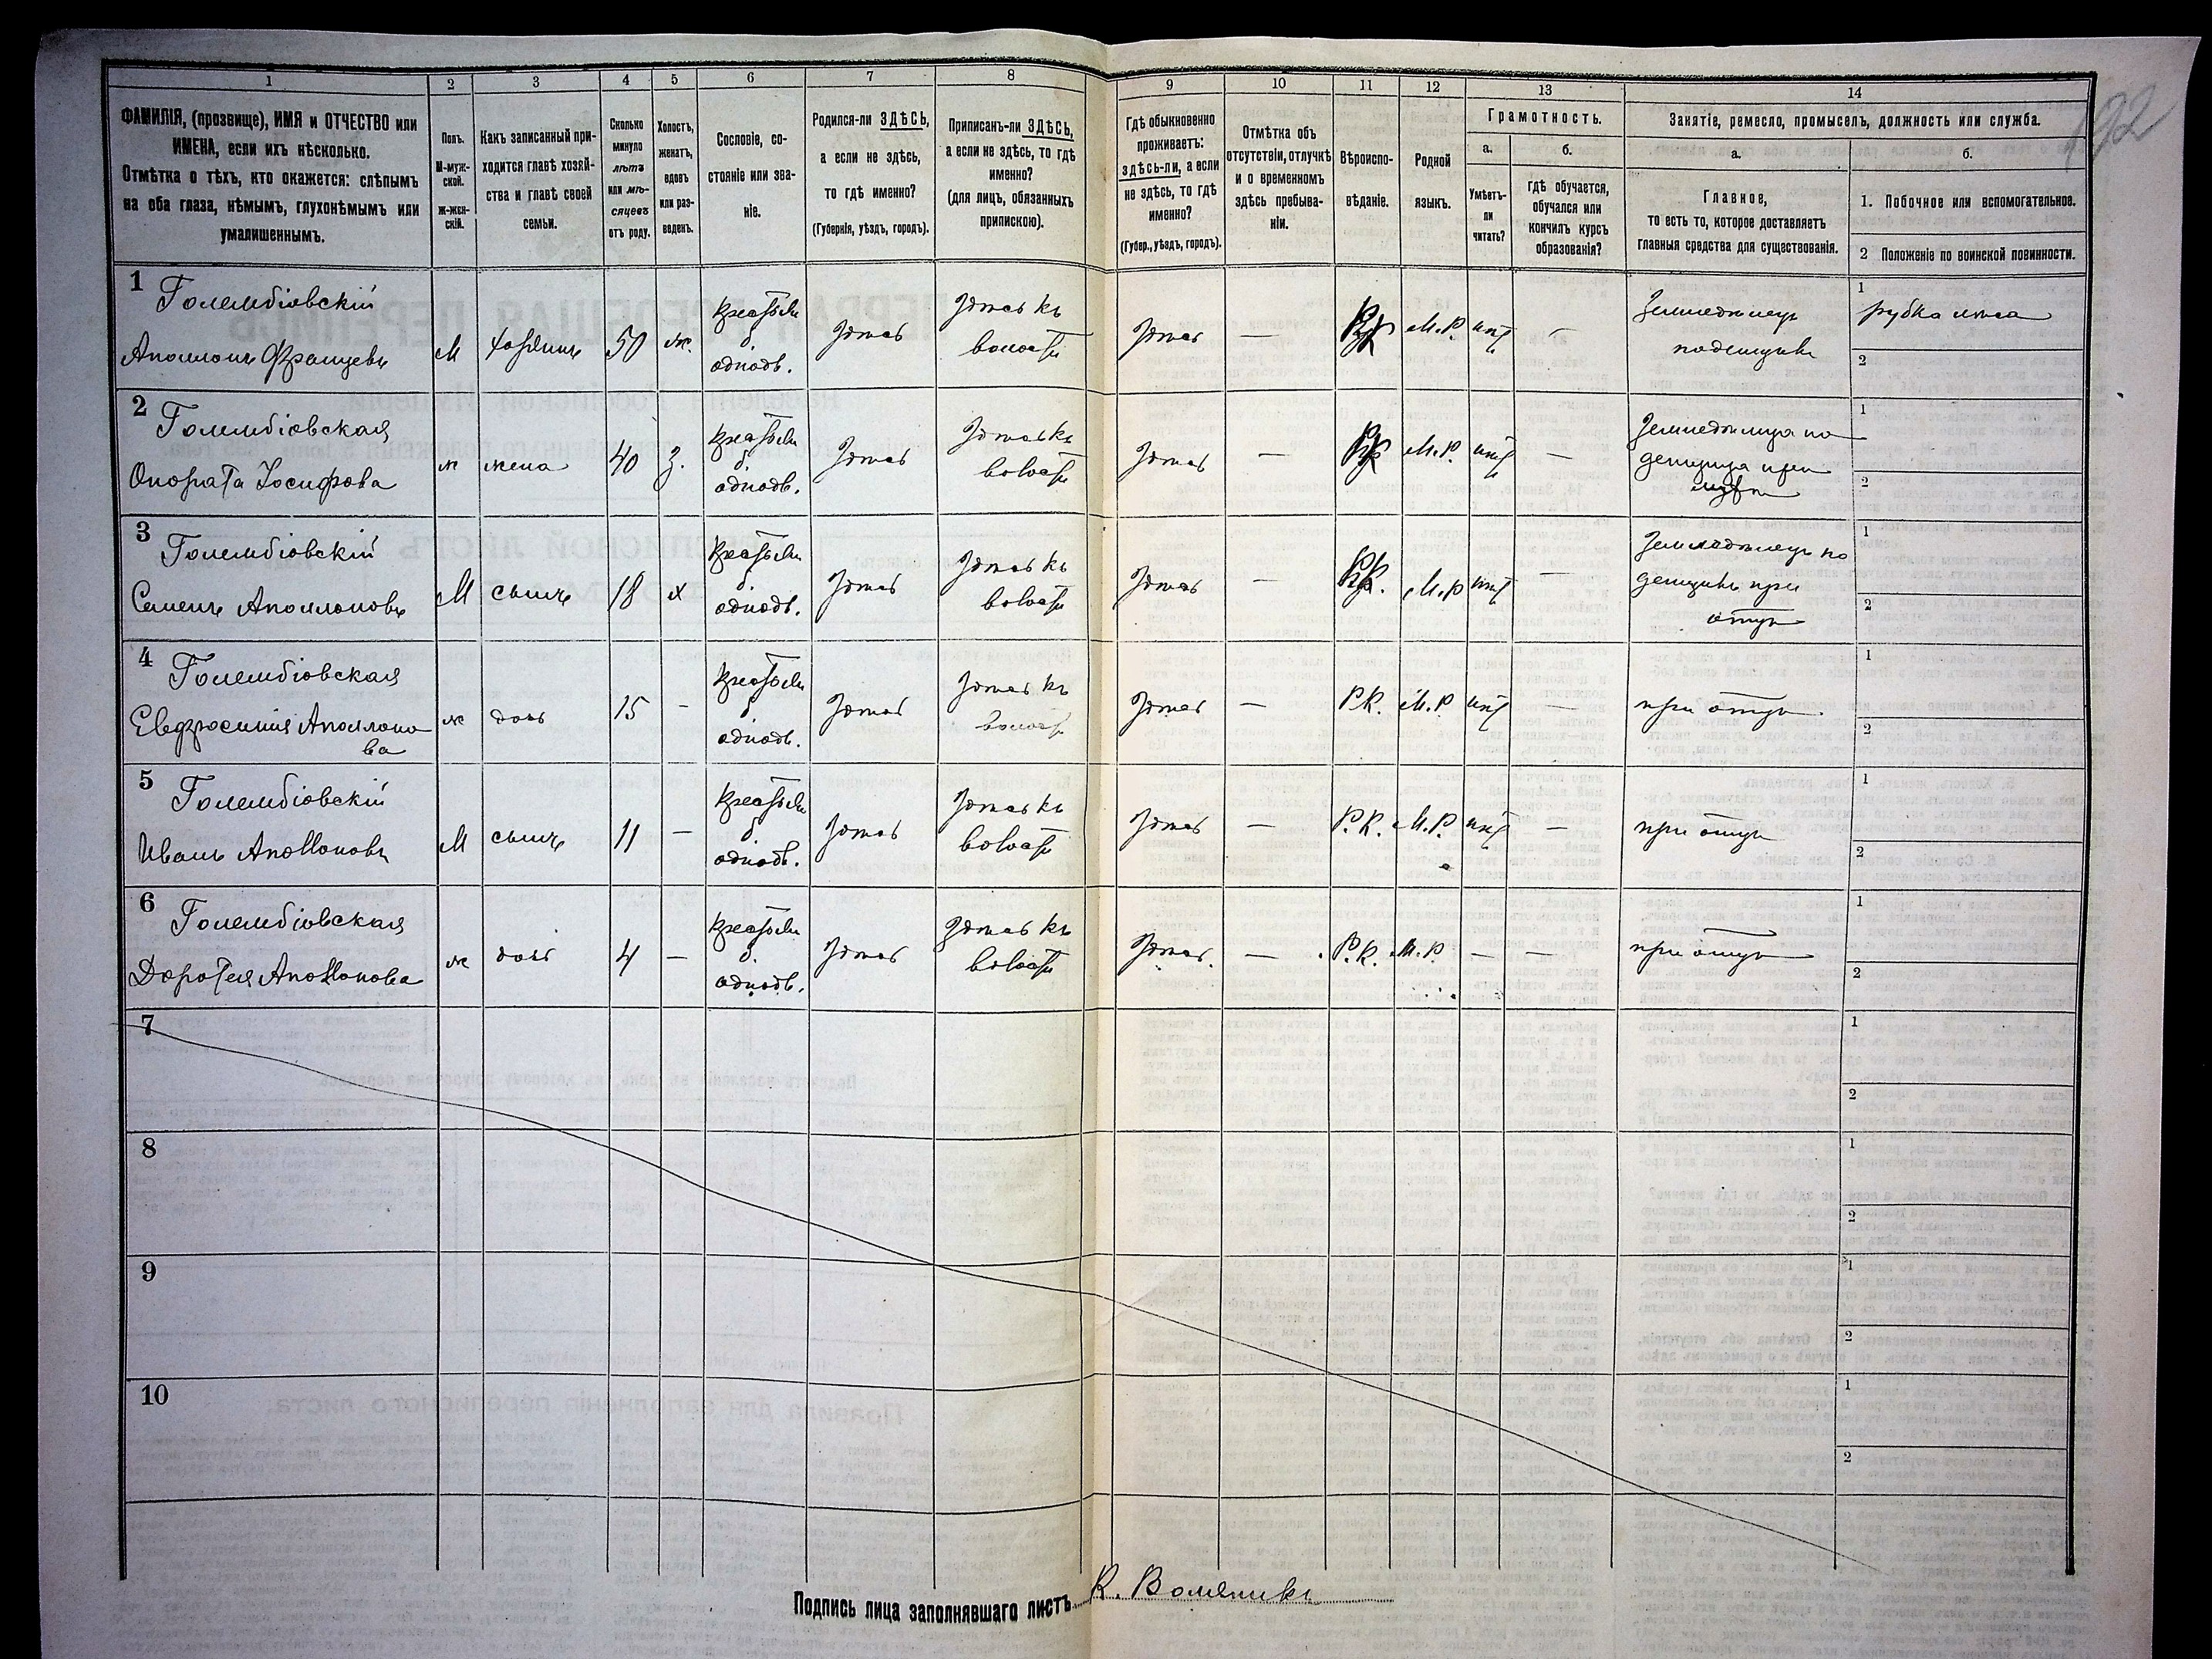 1 2 3 4 5 6 7 8 9 10 11 12 13 14
ФАМИЛІЯ, (прозвище), ИМЯ и ОТЧЕСТВО или
ИМЕНА, если ихъ нѣсколько.
Отмѣтка о тѣхъ, кто окажется: слѣпымъ
на оба глаза, нѣмымъ, глухонѣмымъ или
умалишеннымъ.
Полъ.
М-муж-
ской.
Ж-жен-
скій.
Какъ записанный при-
ходится главѣ хозяй-
ства и главѣ своей
семьи.
Сколько
минуло
лѣтъ
или мѣ-
сяцевъ
отъ роду.
Холостъ,
женатъ,
вдовъ
или раз-
веденъ.
Сословіе, со-
стояніе или зва-
ніе.
Родился-ли ЗДѢСЬ,
а если не здѣсь,
то гдѣ именно?
(Губернія, уѣздъ, городъ).
Приписанъ-ли ЗДѢСЬ,
а если не здѣсь, то гдѣ
именно?
(для лицъ, обязанныхъ
припискою).
Гдѣ обыкновенно
проживаетъ:
здѣсь-ли, а если
не здѣсь, то гдѣ
именно?
(Губер., уѣздъ, городъ).
Отмѣтка объ
отсутствіи, отлучкѣ
и о временномъ
здѣсь пребыва-
ніи.
Вѣроиспо-
вѣданіе.
Родной
языкъ.
Грамотность.
а.
Умѣетъ-
ли
читать?
б.
гдѣ обучается,
обучался или
кончилъ курсъ
образованія?
Занятіе, ремесло, промыселъ, должность или служба.
а.
Главное,
то есть то, которое доставляетъ
главныя средства для существованія.
б.
1. Побочное или вспомогательное.
2 Положеніе по воинской повинности.
192
1 Голембіовскій
Аполлонъ Францевъ М хозяинъ 50 ж. б. однодв. здѣсь здѣсь къ волости здѣсь — М.Р. нѣт —
Земледѣлецъ
поденщикъ
1 рубка лѣса
2
2 Голембіовская
Онората Іосифова ж жена 40 з. б. однодв. здѣсь здѣсь къ волости здѣсь — М.Р. нѣт —
Земледѣлица по
денщица при
мужѣ
1
2
3 Голембіовскій
Семенъ Аполлоновъ М сынъ 18 х б. однодв. здѣсь здѣсь къ волости здѣсь — М.Р нѣт —
Земледѣлецъ по
денщикъ при
отцѣ
1
2
4 Голембіовская
Евфросинія Аполлоно
ва ж дочь 15 - б. однодв. здѣсь здѣсь къ волости здѣсь — Р.К. М.Р. нѣт —
при отцѣ
1
2
5 Голембіовскій
Иванъ Аполлоновъ М сынъ 11 — б. однодв. здѣсь здѣсь къ волости здѣсь — Р.К. М.Р. нѣт —
при отцѣ
1
2
6 Голембіовская
Доротея Аполлонова ж дочь 4 — б. однодв. здѣсь здѣсь къ волости здѣсь. — Р.К. М.Р. — —
при отцѣ
1
2
7
1
2
8
1
2
9
1
2
10
1
2
Подпись лица заполнявшаго листъ К.